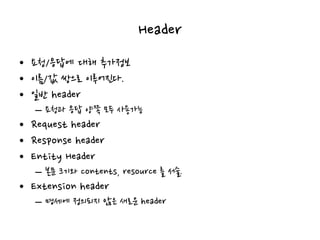 Header
• 요청/응답에 대해 추가정보
• 이름/값 쌍으로 이루어진다.
• 일반 header
– 요청과 응답 양쪽 모두 사용가능
• Request header
• Response header
• Entity Header
– 본문 크기와 contents, resource 를 서술
• Extension header
– 명세에 정의되지 않은 새로운 header